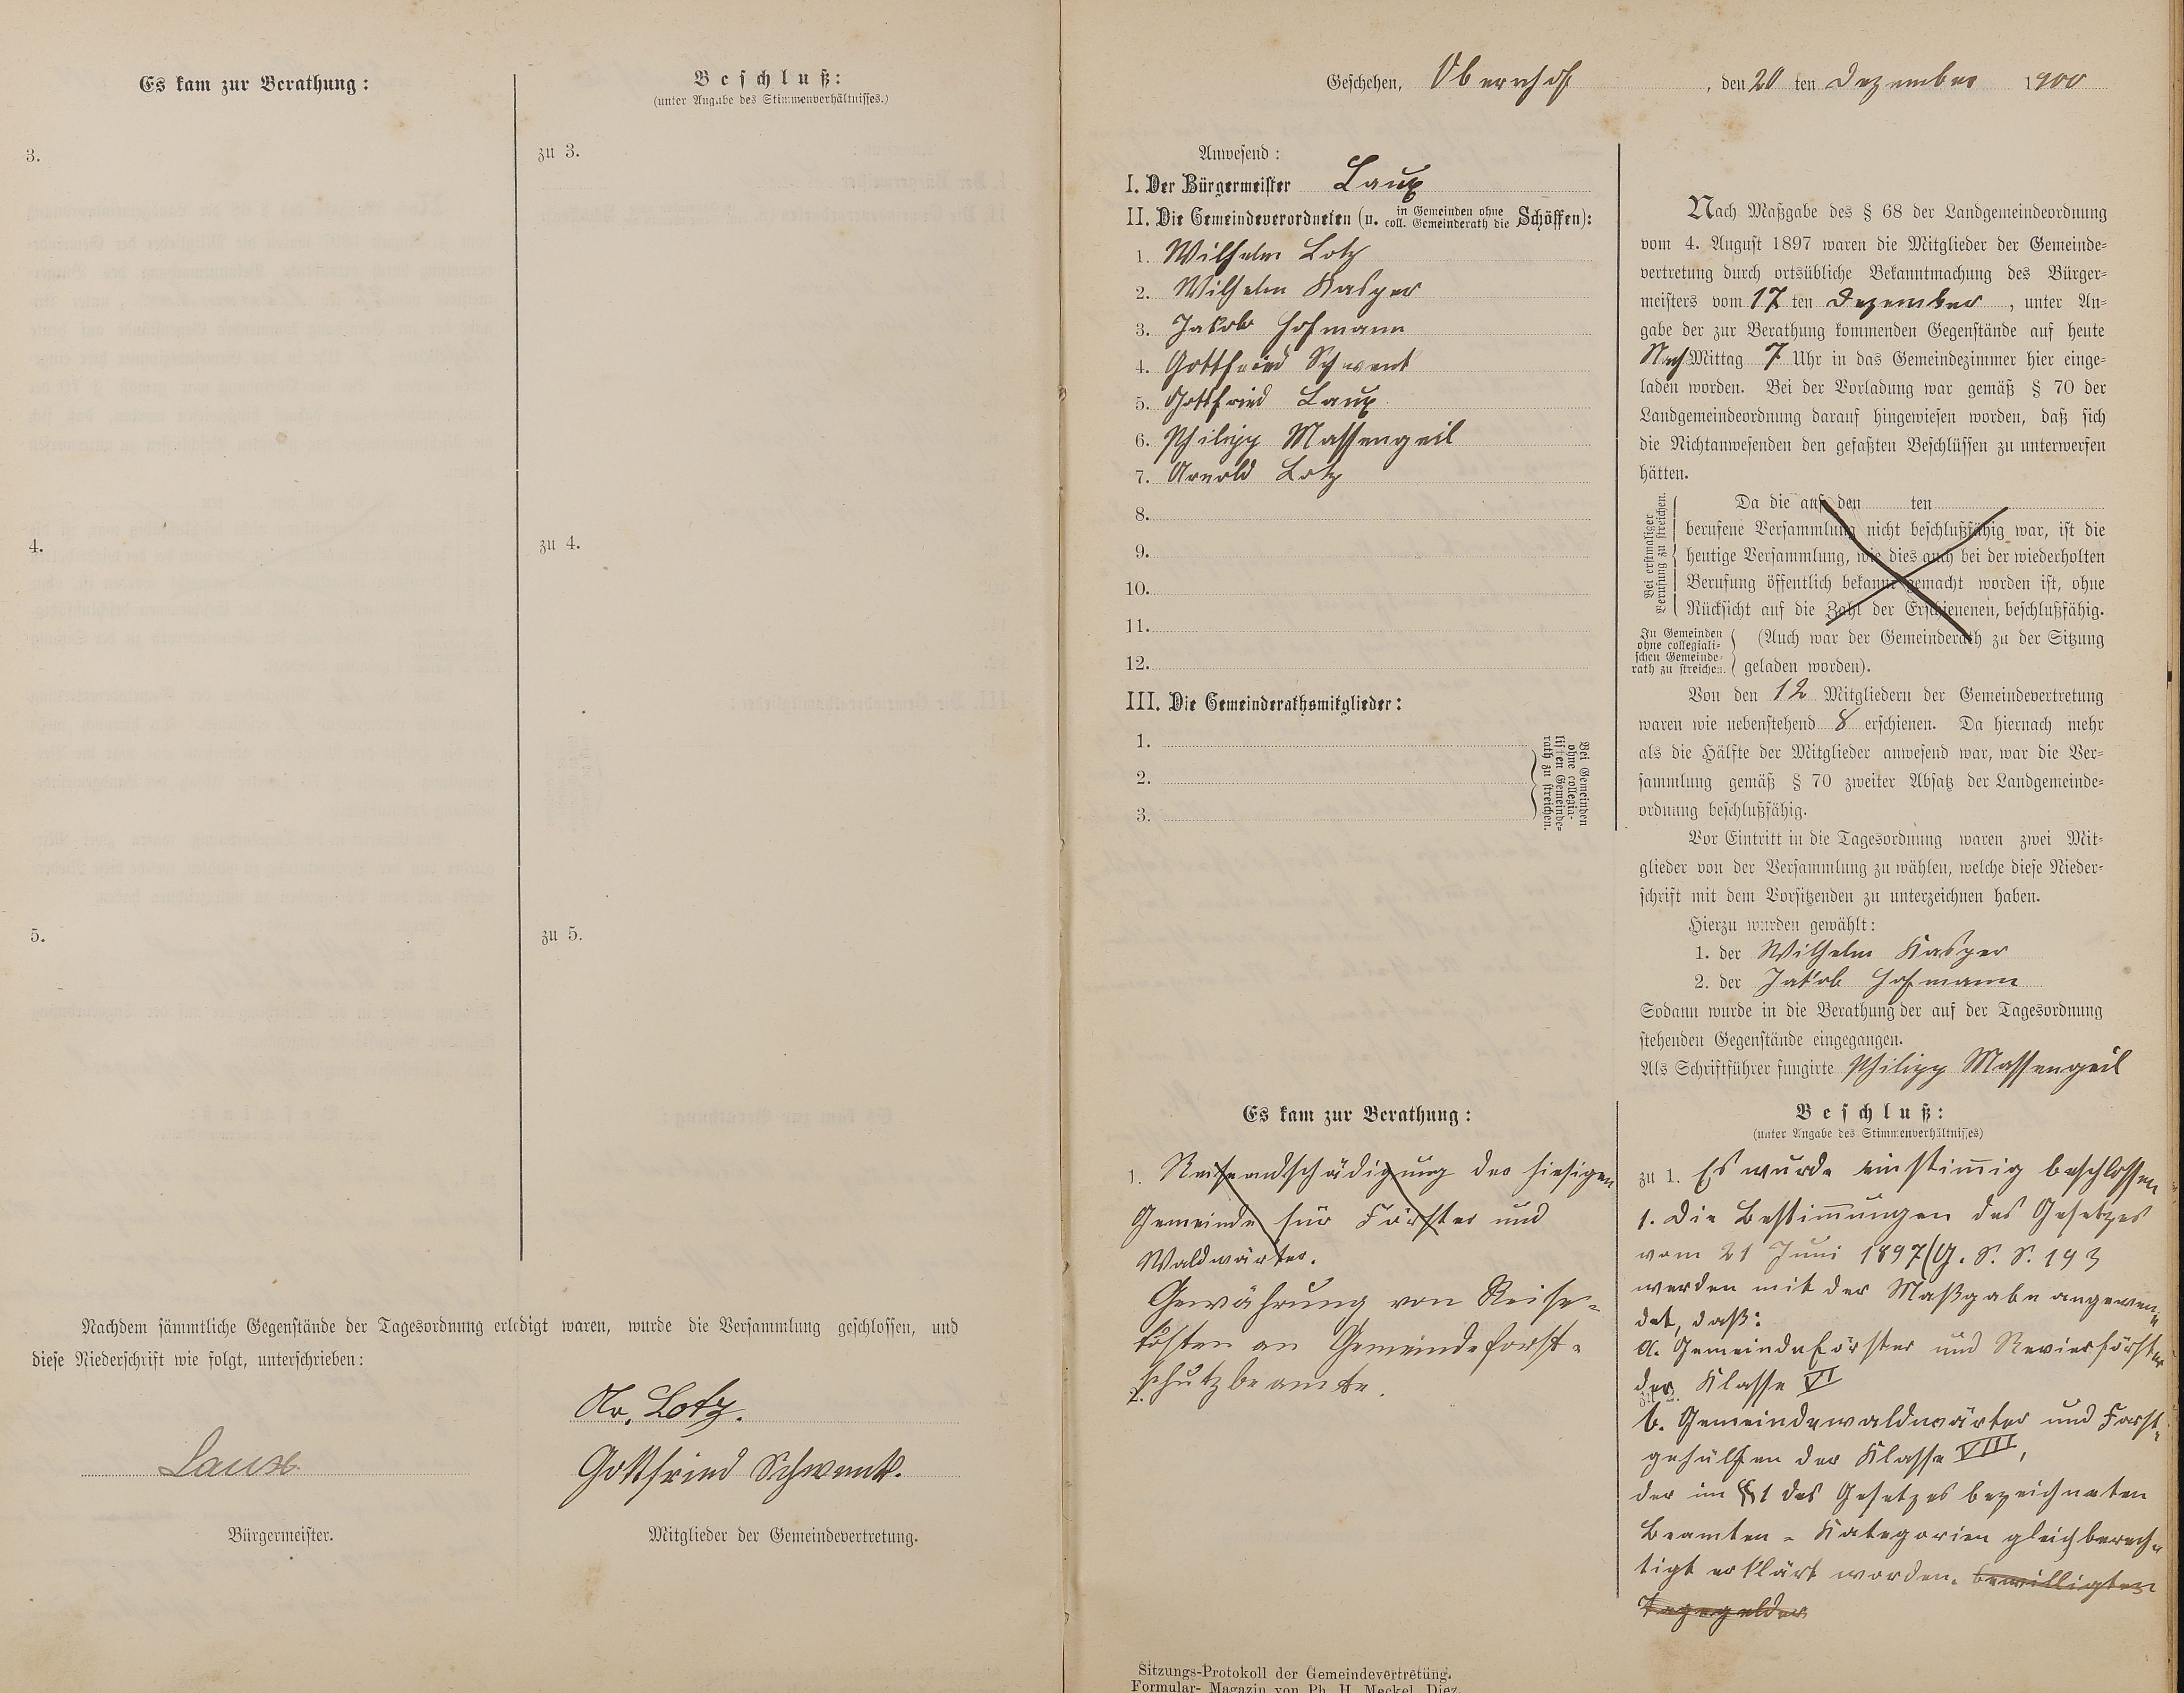 Es kam zur Berathung:
Beschluß:
(unter Angabe des Stimmenverhältnisses.)
3.
zu 3.
4.
zu 4.
5.
zu 5.
Nachdem sämmtliche Gegenstände der Tagesordnung erledigt waren, wurde die Versammlung geschlossen, und
diese Niederschrift wie folgt, unterschrieben:
Ar. Lotz.
Laux
Gottfried Schwenk.
Bürgermeister.
Mitglieder der Gemeindevertretung.
Geschehen, Obernhof, den 20 ten Dezember 1900
Anwesend:
I. Der Bürgermeister Laux
II. Die Gemeindeverordneten (u. in Gemeinden ohne coll. Gemeinderath die Schöffen):
1. Wilhelm Lotz
2. Wilhelm Kasper
3. Jakob Hofmann
4. Gottfried Schwenk
5. Gottfried Laux
6. Philipp Massengeil
7. Arnold Lotz
8.
9.
10.
11.
12.
III. Die Gemeinderathsmitglieder:
1.
2.
3.
Bei Gemeinden
ohne collegia-
lischen Gemeinde-
rath zu streichen.
Nach Maßgabe des § 68 der Landgemeindeordnung
vom 4. August 1897 waren die Mitglieder der Gemeinde-
vertretung durch ortsübliche Bekanntmachung des Bürger-
meisters vom 17 ten Dezember, unter An-
gabe der zur Berathung kommenden Gegenstände auf heute
Nach Mittag 7 Uhr in das Gemeindezimmer hier einge-
laden worden. Bei der Vorladung war gemäß § 70 der
Landgemeindeordnung darauf hingewiesen worden, daß sich
die Nichtanwesenden den gefaßten Beschlüssen zu unterwerfen
hätten.
Bei erstmaliger
Berufung zu streichen.
Da die auf den ten
berufene Versammlung nicht beschlußfähig war, ist die
heutige Versammlung, wie dies auch bei der wiederholten
Berufung öffentlich bekannt gemacht worden ist, ohne
Rücksicht auf die Zahl der Erschienenen, beschlußfähig.
In Gemeinden
ohne collegiali-
schen Gemeinde-
rath zu streichen.
(Auch war der Gemeinderath zu der Sitzung
geladen worden).
Von den 12 Mitgliedern der Gemeindevertretung
waren wie nebenstehend 8 erschienen. Da hiernach mehr
als die Hälfte der Mitglieder anwesend war, war die Ver-
sammlung gemäß § 70 zweiter Absatz der Landgemeinde-
ordnung beschlußfähig.
Vor Eintritt in die Tagesordnung waren zwei Mit-
glieder von der Versammlung zu wählen, welche diese Nieder-
schrift mit dem Vorsitzenden zu unterzeichnen haben.
Hierzu wurden gewählt:
1. der Wilhelm Kasper
2. der Jakob Hofmann
Sodann wurde in die Berathung der auf der Tagesordnung
stehenden Gegenstände eingegangen.
Als Schriftführer fungirte Philipp Massengeil
Es kam zur Berathung:
1. Reiseentschädigung der hiesigen
Gemeinde für Förster und
Waldwärter.
Gewährung von Reise-
kosten an Gemeindeforst-
schutzbeamte.
2.
Beschluß:
(unter Angabe des Stimmenverhältnisses)
zu 1. Es wurde einstimmig beschlossen
1. Die Bestimmungen des Gesetzes
vom 21 Juni 1897 (G. S. S. 193
werden mit der Maßgabe angewen-
det, daß:
a. Gemeindeförster und Revierförster
der Klasse VI
zu 2.
b. Gemeindewaldwärter und Forst-
gehülfen der Klasse VIII,
der im §1 des Gesetzes bezeichneten
Beamten-Kategorien gleichberech-
tigt erklärt worden. bewilligten
Tagegelder
Sitzungs-Protokoll der Gemeindevertretung.
Formular-Magazin von Ph. H. Meckel, Diez.